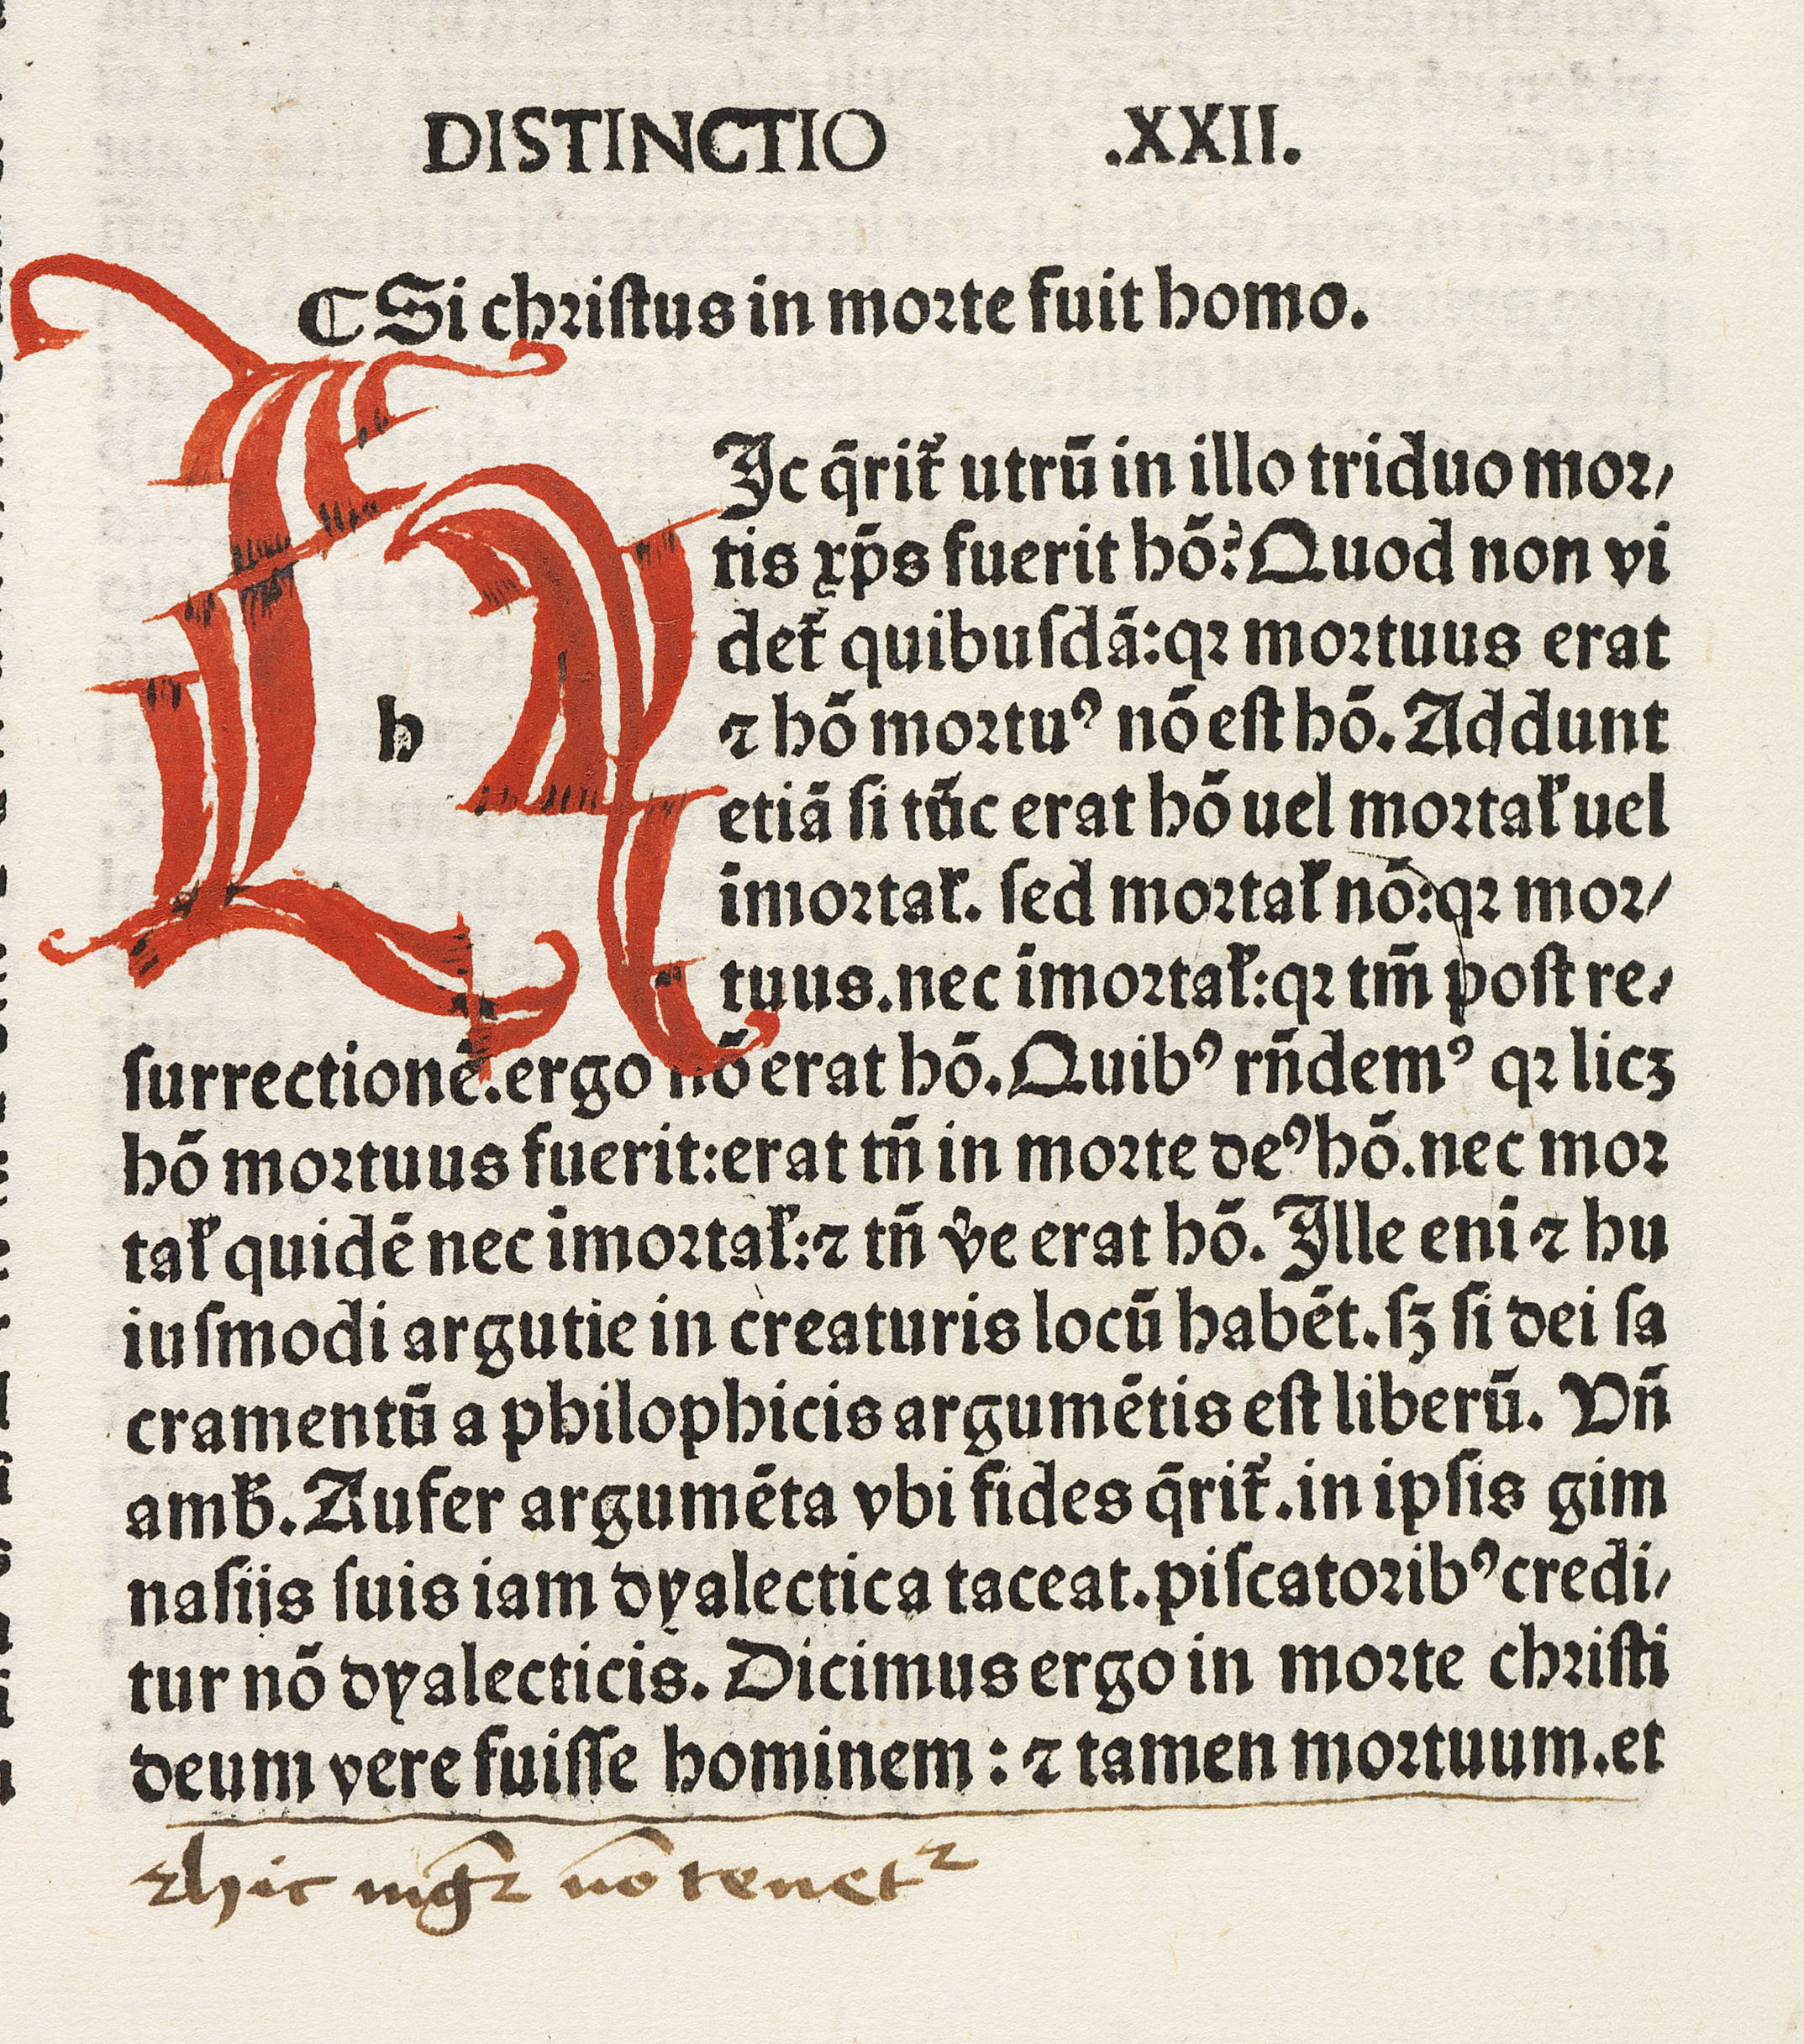 DISTINCTIO .XXII.
¶ Si chriſtus in morte fuit homo.
h
Ic q̄rit᷑ utrū in illo triduo mor⸗
tis xp̄s fuerit hō? Quod non vi
det᷑ quibuſdā: qꝛ mortuus erat
⁊ hō mortuꝰ nō eſt hō. Addunt
etiā ſi tūc erat hō uel mortal̓ uel
īmortal̓. ſed mortal̓ nō: qꝛ mor⸗
tuus. nec īmortal̓: qꝛ tm̄ poſt re⸗
ſurrectionē. ergo nō erat hō. Quibꝰ rn̄demꝰ qꝛ licꝫ
hō mortuus fuerit: erat tn̄ in morte deꝰ hō. nec mor
tal̓ quidē nec īmortal̓: ⁊ tn̄ v̄e erat hō. Ille enī ⁊ hu
iuſmodi argutie in creaturis locū habēt. ſꝫ ſi dei ſa
cramentū a philophicis argumētis eſt liberū. Vn̄
amb̄. Aufer argumēta vbi fides q̄rit᷑. in ipſis gim
naſiis ſuis iam dyalectica taceat. piſcatoribꝰ credi⸗
tur nō dyalecticis. Dicimus ergo in morte chriſti
deum vere fuiſſe hominem : ⁊ tamen mortuum. et
⁊ hic mg̅r nō tenetᷣ